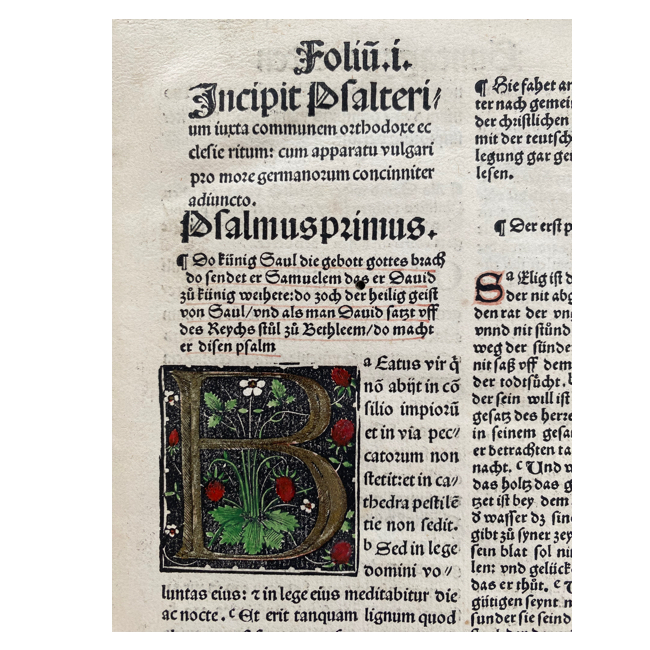 Foliū.i.
Incipit Psalteri⸗
um iuxta communem orthodoxe ec
clesie ritum: cum apparatu vulgari
pro more germanorum concinniter
adiuncto.
Psalmusprimus.
¶ Do künig Saul die gebott gottes brach
do sendet er Samuelem das er Dauid
zů künig weihete:do zoch der heilig geist
von Saul/vnd als man Dauid satzt vff
des Reychs stůl zů Bethleem/do macht
er disen psalm
B
a Eatus vir q̄
nō abijt in cō
silio impiorū
et in via pec⸗
catorum non
stetit:et in ca⸗
thedra pestilē
tie non sedit.
b Sed in lege
domini vo⸗
luntas eius: ⁊ in lege eius meditabitur die
ac nocte. c Et erit tanquam lignum quod
¶ Hie fahet an
ter nach gemei
der christlichen
mit der teutsch
legung gar ge
lesen.
¶ Der erst p
S a Elig ist d
der nit abg
den rat der vng
vnnd nit stünd
weg der sünde
nit saß vff dem
der todtsücht. b
der sein will ist
gesatz des herre
in seinem gesa
er betrachten ta
nacht. c Vnd w
das holtz das g
tzet ist bey dem
d wasser dz sin
gibt zů syner zey
sein blat sol ni
len: vnd gelück
das er thůt. c
gütigen seynt n
sunder sie seind